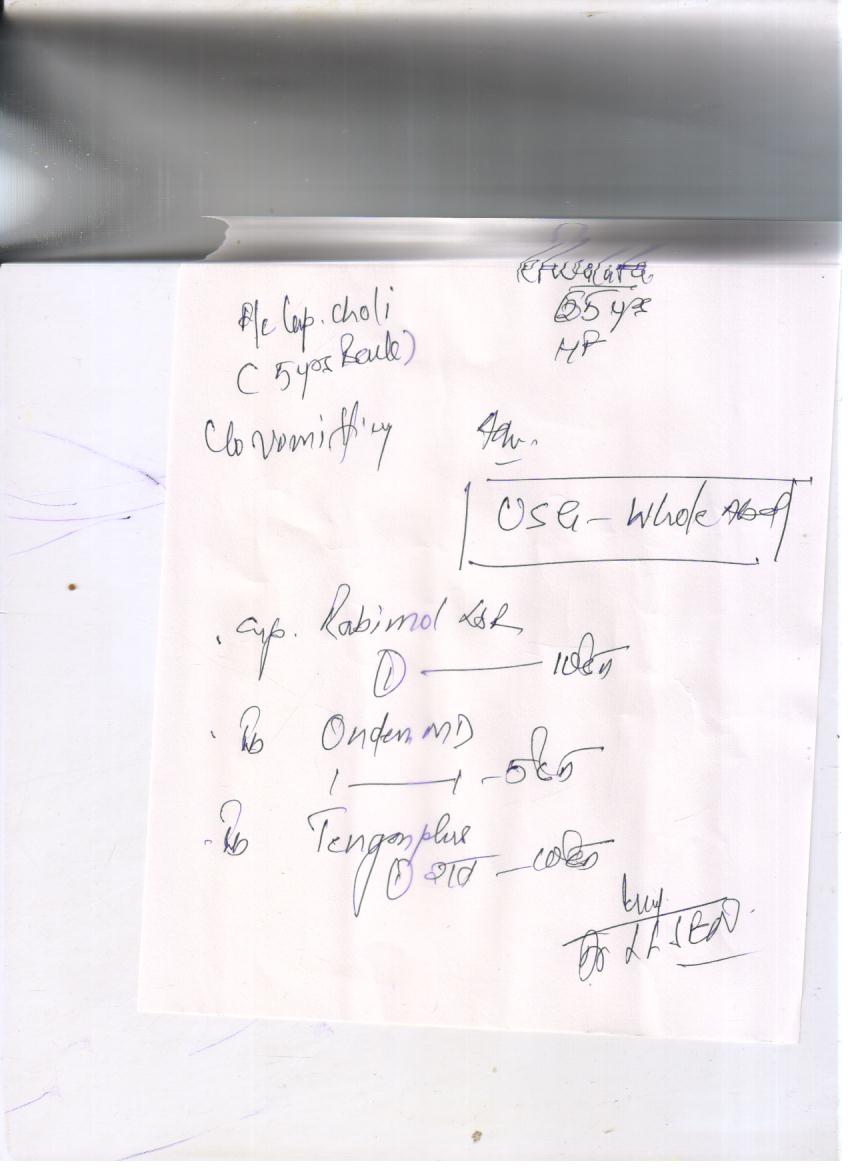 25 yrs
Lap. choli
( 5 yrs Back)
C/o vomitting
Adv.
USG - Whole Abd
. Cap. Rabimol DSR
① — 10 दिन
. Tab Ondem MD
1 — 1 - 5 दिन
- Tab Tengonplus
① रात — 10 दिन
Dr L L SEN